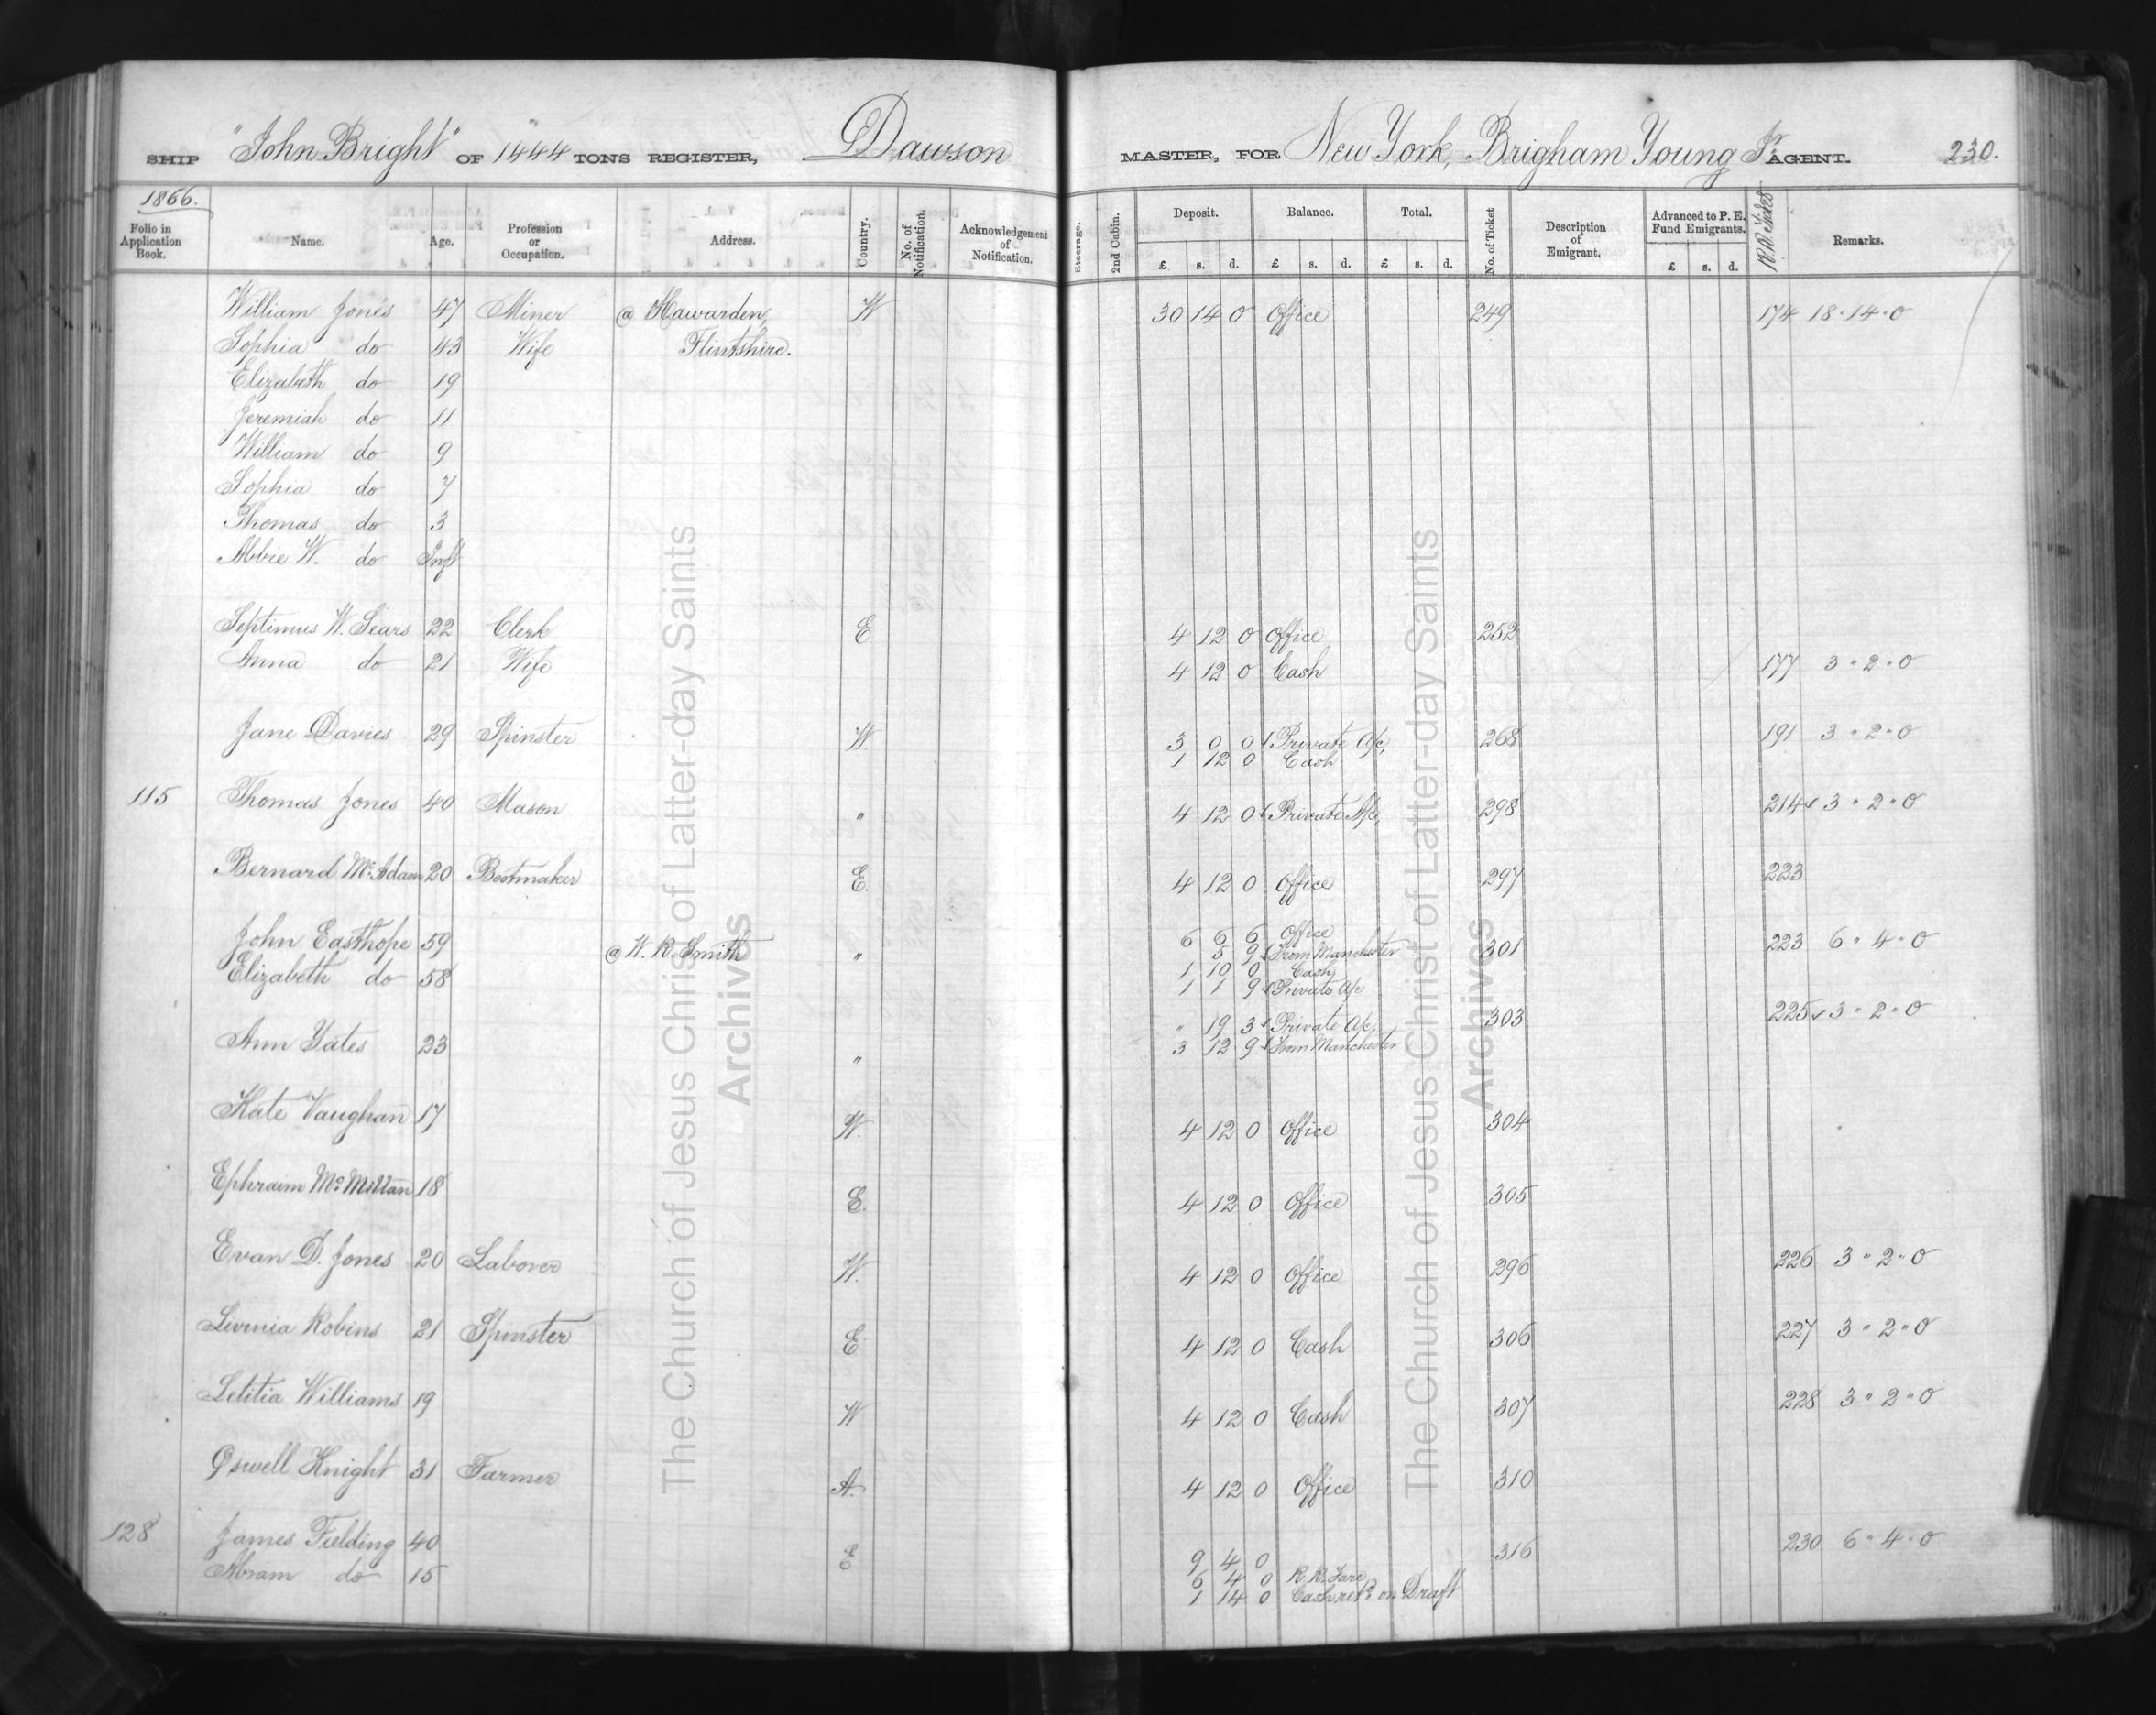 SHIP "John Bright" OF 1444 TONS REGISTER, Dawson MASTER, FOR New York, Brigham Young Jr AGENT. 230.
1866.
Folio in Application Book. Name. Age. Profession or Occupation. Address. Country. No. of Notification. Acknowledgement of Notification. Steerage. 2nd Cabin. Deposit. £ s. d. Balance. £ s. d. Total. £ s. d. No. of Ticket Description of Emigrant. Advanced to P. E. Fund Emigrants. £ s. d. Remarks.
William Jones 47 Miner @ Hawarden, W 30 14 0 Office 249 174 18 " 14 " 0
Sophia do 43 Wife Flintshire.
Elizabeth do 19
Jeremiah do 11
William do 9
Sophia do 7
Thomas do 3
Abbie W. do Inft
Septimus W. Sears 22 Clerk E 4 12 0 Office 252
Anna do 21 Wife 4 12 0 Cash 177 3 " 2 " 0
Jane Davies 29 Spinster W. 3 0 0 Private A/c, 268 191 3 " 2 " 0
1 12 0 Cash
115 Thomas Jones 40 Mason " 4 12 0 Private A/c, 298 214 3 " 2 " 0
Bernard Mc.Adam 20 Bootmaker E. 4 12 0 Office 297 223
John Easthope 59 @ W. R. Smith " 6 6 6 Office 301 223 6 " 4 " 0
5 9 From Manchester
Elizabeth do 58 1 10 0 Cash
1 1 9 Private A/c
Ann Yates 23 " " 19 3 Private A/c, 303 225 3 " 2 " 0
3 12 9 From Manchester
Kate Vaughan 17 W. 4 12 0 Office 304
Ephraim Mc.Millan 18 E. 4 12 0 Office 305
Evan D. Jones 20 Laborer W. 4 12 0 Office 296 226 3 " 2 " 0
Robins 21 Spinster E 4 12 0 Cash 306 227 3 " 2 " 0
Letitia Williams 19 W 4 12 0 Cash 307 228 3 " 2 " 0
Oswell Knight 31 Farmer A. 4 12 0 Office 310
128 James Fielding 40 E 9 4 0 316 230 6 " 4 " 0
Abram do 15 6 4 0 R. R. Fare
1 14 0 Cash retd on Draft
The Church of Jesus Christ of Latter-day Saints
Archives
The Church of Jesus Christ of Latter-day Saints
Archives